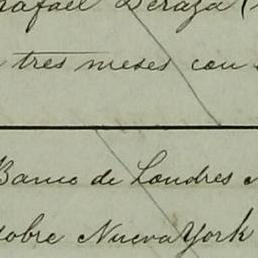 Rafael Peraza (
tres meses con
Banco de Londres
sobre Nueva York